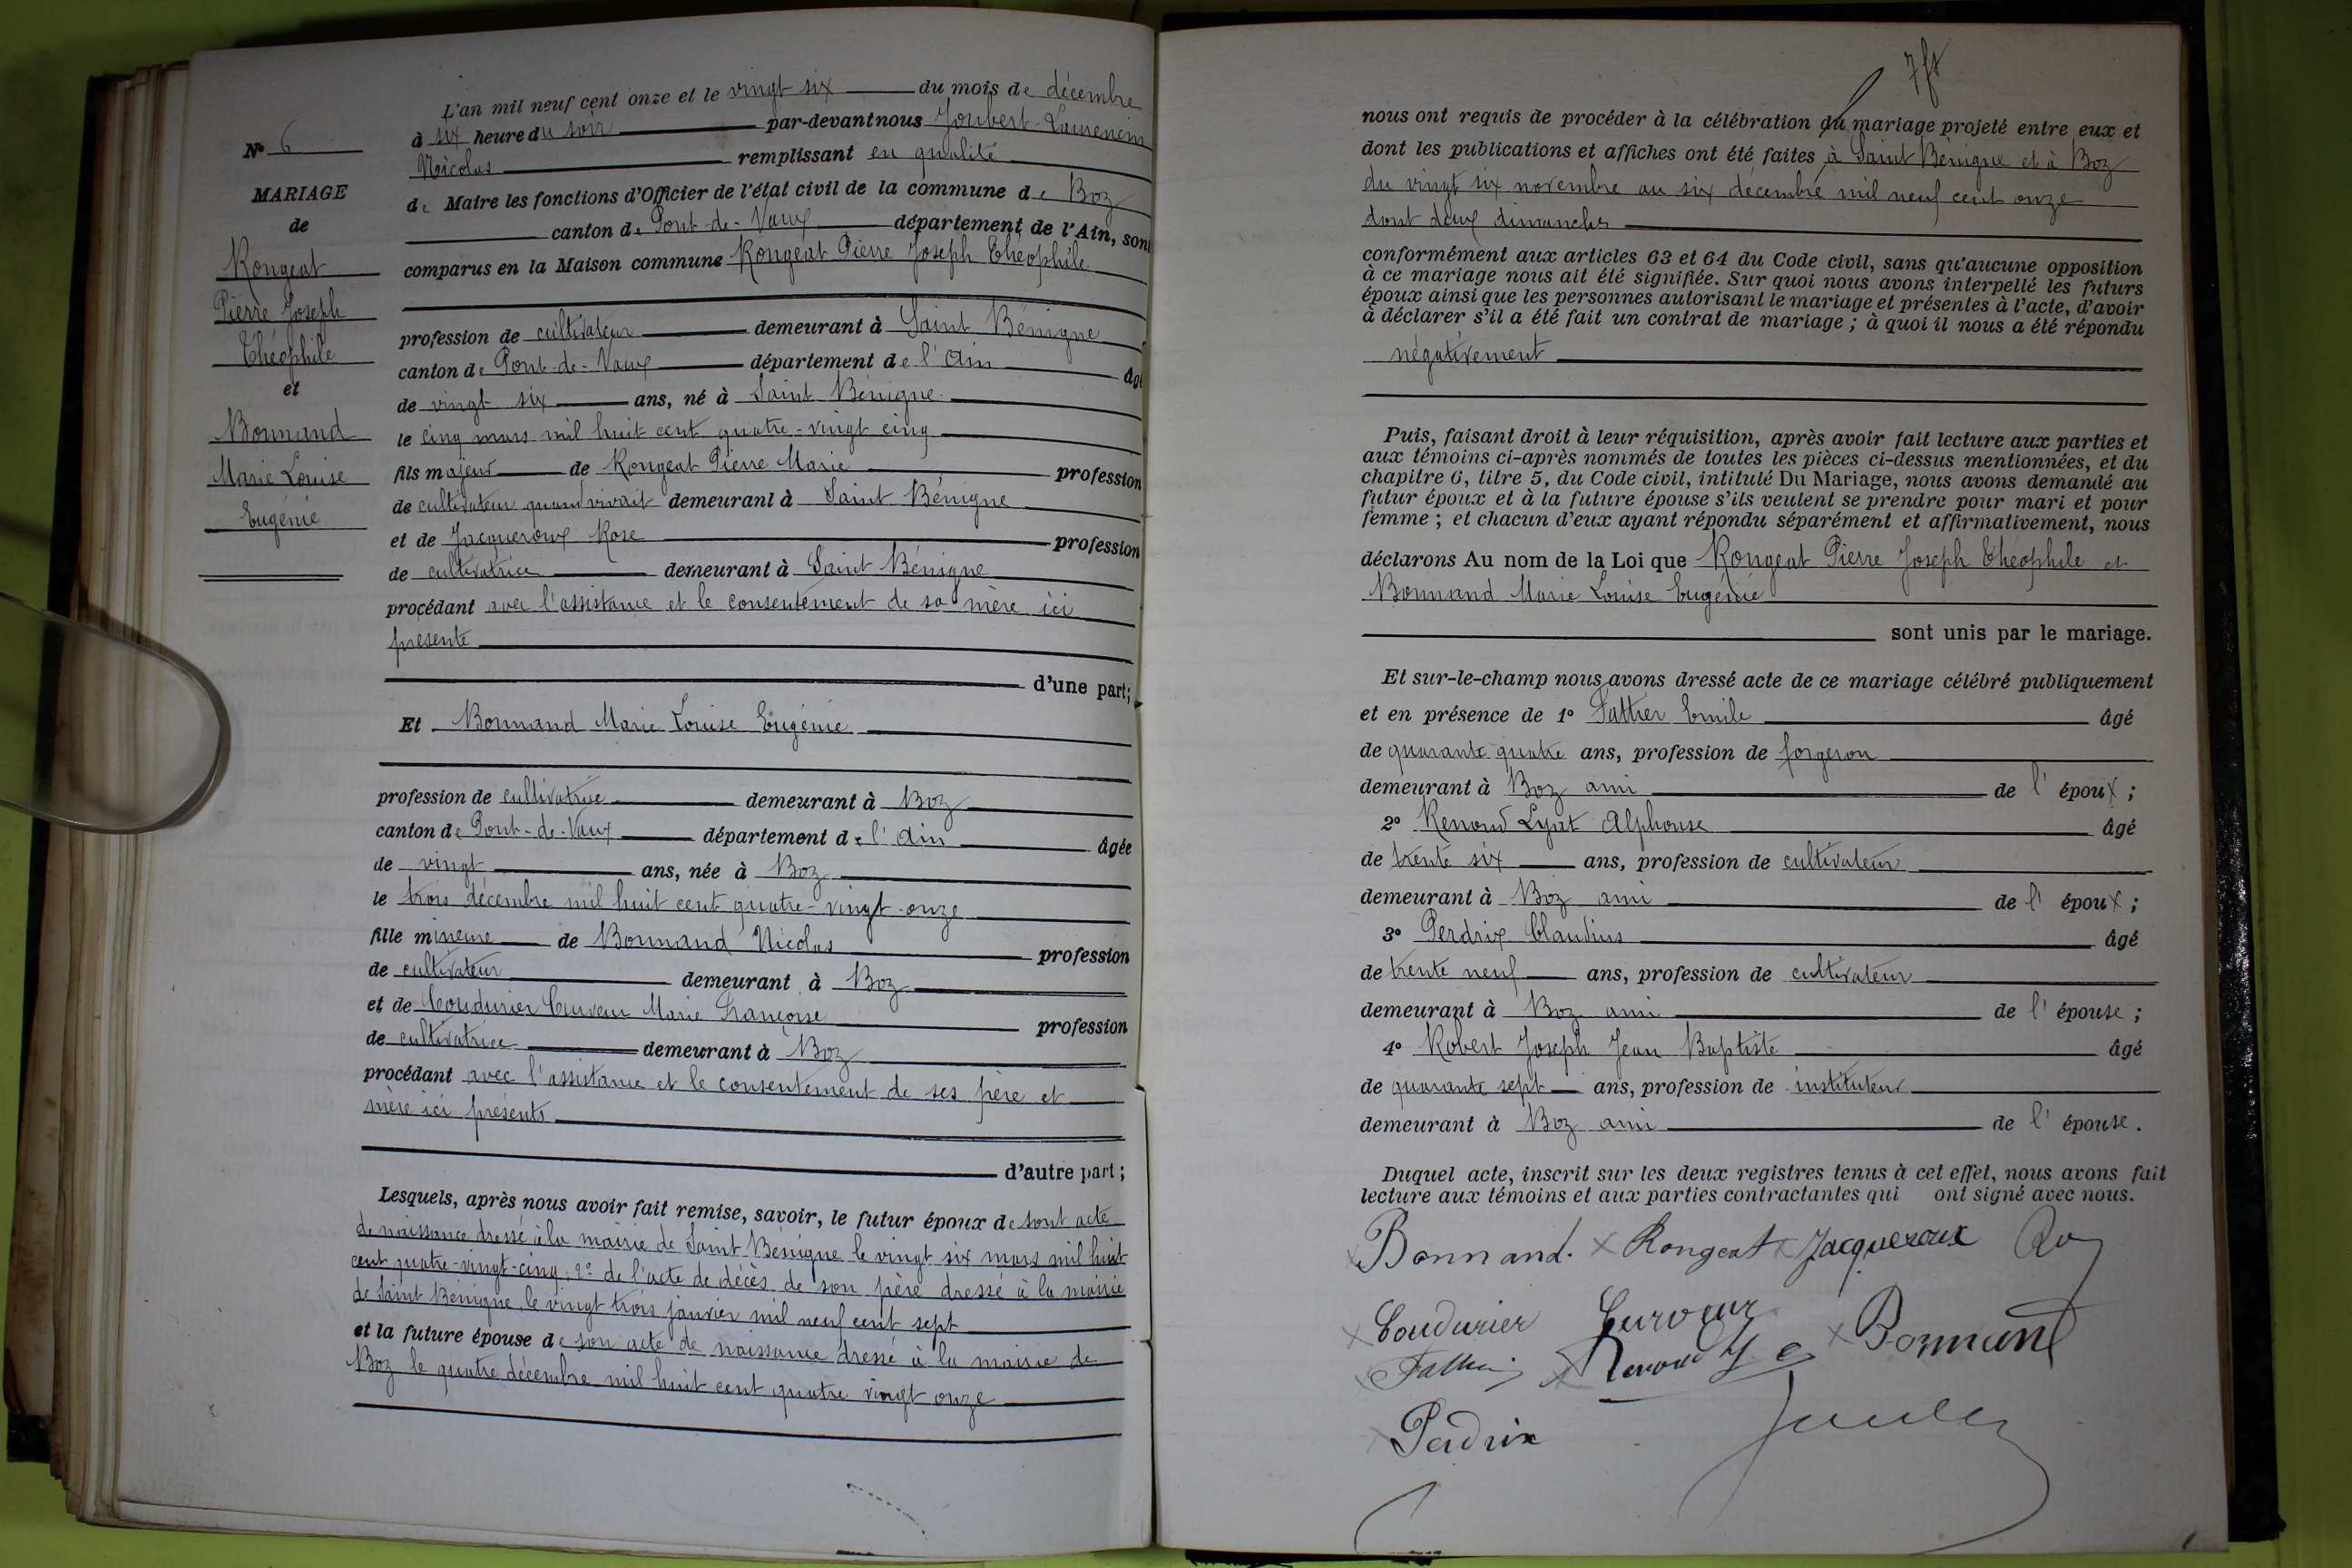 N° 6
MARIAGE
de
Rongeat
Pierre Joseph
Théophile
et
Bonnand
Marie Louise
Eugénie
L'an mil neuf cent onze et le vingt six du mois de décembre
à six heure du soir par-devant nous Joubert-Laurencin
Nicolas remplissant en qualité
de Maire les fonctions d'Officier de l'état civil de la commune de Boz
canton de Pont-de-Vaux département de l'Ain, sont
comparus en la Maison commune Rongeat Pierre Joseph Théophile
profession de cultivateur demeurant à Saint Bénigne
canton de Pont-de-Vaux département de l'Ain âgé
de vingt six ans, né à Saint Bénigne
le cinq mars mil huit cent quatre-vingt cinq
fils majeur de Rongeat Pierre Marie profession
de cultivateur quand vivait demeurant à Saint Bénigne
et de Jacqueroux Rose profession
de cultivatrice demeurant à Saint Bénigne
procédant avec l'assistance et le consentement de sa mère ici
présente
d'une part;
Et Bonnand Marie Louise Eugénie
profession de cultivatrice demeurant à Boz
canton de Pont-de-Vaux département de l'Ain âgée
de vingt ans, née à Boz
le trois décembre mil huit cent quatre-vingt-onze
fille mineure de Bonnand Nicolas profession
de cultivateur demeurant à Boz
et de Coudurier Curveur Marie Françoise profession
de cultivatrice demeurant à Boz
procédant avec l'assistance et le consentement de ses père et
mère ici présents
d'autre part;
Lesquels, après nous avoir fait remise, savoir, le futur époux de sont acte
de naissance dressé à la mairie de Saint Bénigne le vingt six mars mil huit
cent quatre-vingt-cinq; 2° de l'acte de décès de son père dressé à la mairie
de Saint Bénigne le vingt trois janvier mil neuf cent sept
et la future épouse de son acte de naissance dressé à la mairie de
Boz le quatre décembre mil huit cent quatre vingt onze
nous ont requis de procéder à la célébration du mariage projeté entre eux et
dont les publications et affiches ont été faites à Saint Bénigne et à Boz
du vingt six novembre au six décembre mil neuf cent onze
dont deux dimanches
conformément aux articles 63 et 64 du Code civil, sans qu'aucune opposition
à ce mariage nous ait été signifiée. Sur quoi nous avons interpellé les futurs
époux ainsi que les personnes autorisant le mariage et présentes à l'acte, d'avoir
à déclarer s'il a été fait un contrat de mariage; à quoi il nous a été répondu
négativement
Puis, faisant droit à leur réquisition, après avoir fait lecture aux parties et
aux témoins ci-après nommés de toutes les pièces ci-dessus mentionnées, et du
chapitre 6, titre 5, du Code civil, intitulé Du Mariage, nous avons demandé au
futur époux et à la future épouse s'ils veulent se prendre pour mari et pour
femme; et chacun d'eux ayant répondu séparément et affirmativement, nous
déclarons Au nom de la Loi que Rongeat Pierre Joseph Théophile et
Bonnand Marie Louise Eugénie
sont unis par le mariage.
Et sur-le-champ nous avons dressé acte de ce mariage célébré publiquement
et en présence de 1° Fattier Emile âgé
de quarante quatre ans, profession de forgeron
demeurant à Boz ami de l'époux;
2° Renoud Lyat Alphonse âgé
de trente six ans, profession de cultivateur
demeurant à Boz ami de l'époux;
3° Perdrix Claudius âgé
de trente neuf ans, profession de cultivateur
demeurant à Boz ami de l'épouse;
4° Robert Joseph Jean Baptiste âgé
de quarante sept ans, profession de instituteur
demeurant à Boz ami de l'épouse.
Duquel acte, inscrit sur les deux registres tenus à cet effet, nous avons fait
lecture aux témoins et aux parties contractantes qui ont signé avec nous.
Bonnand. Rongeat Jacqueroux
Coudurier Curveur
Fattier Renoud Bonnand
Perdrix